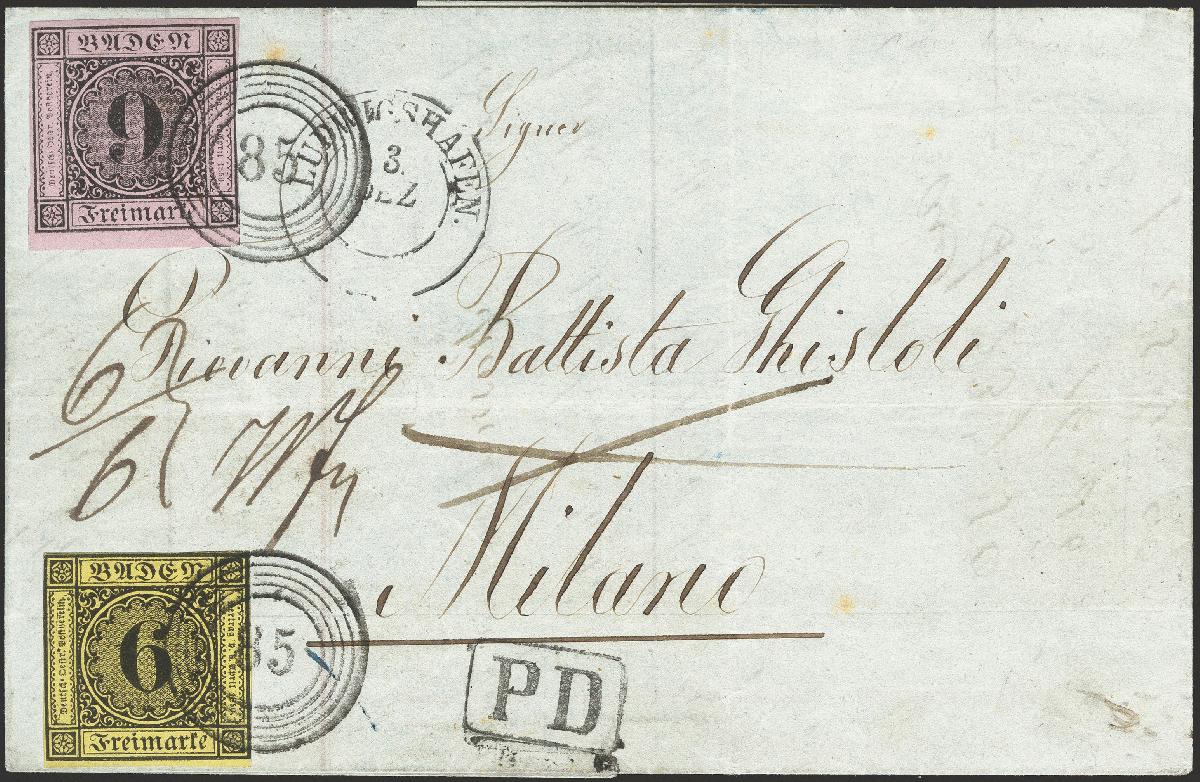 BADEN
9
Freimarke
85
LUDWIGSHAFEN.
3.
DEZ
Signor
Giovanni Battista Ghisloli
6
6
Milano
BADEN
6
Freimarke
85
PD